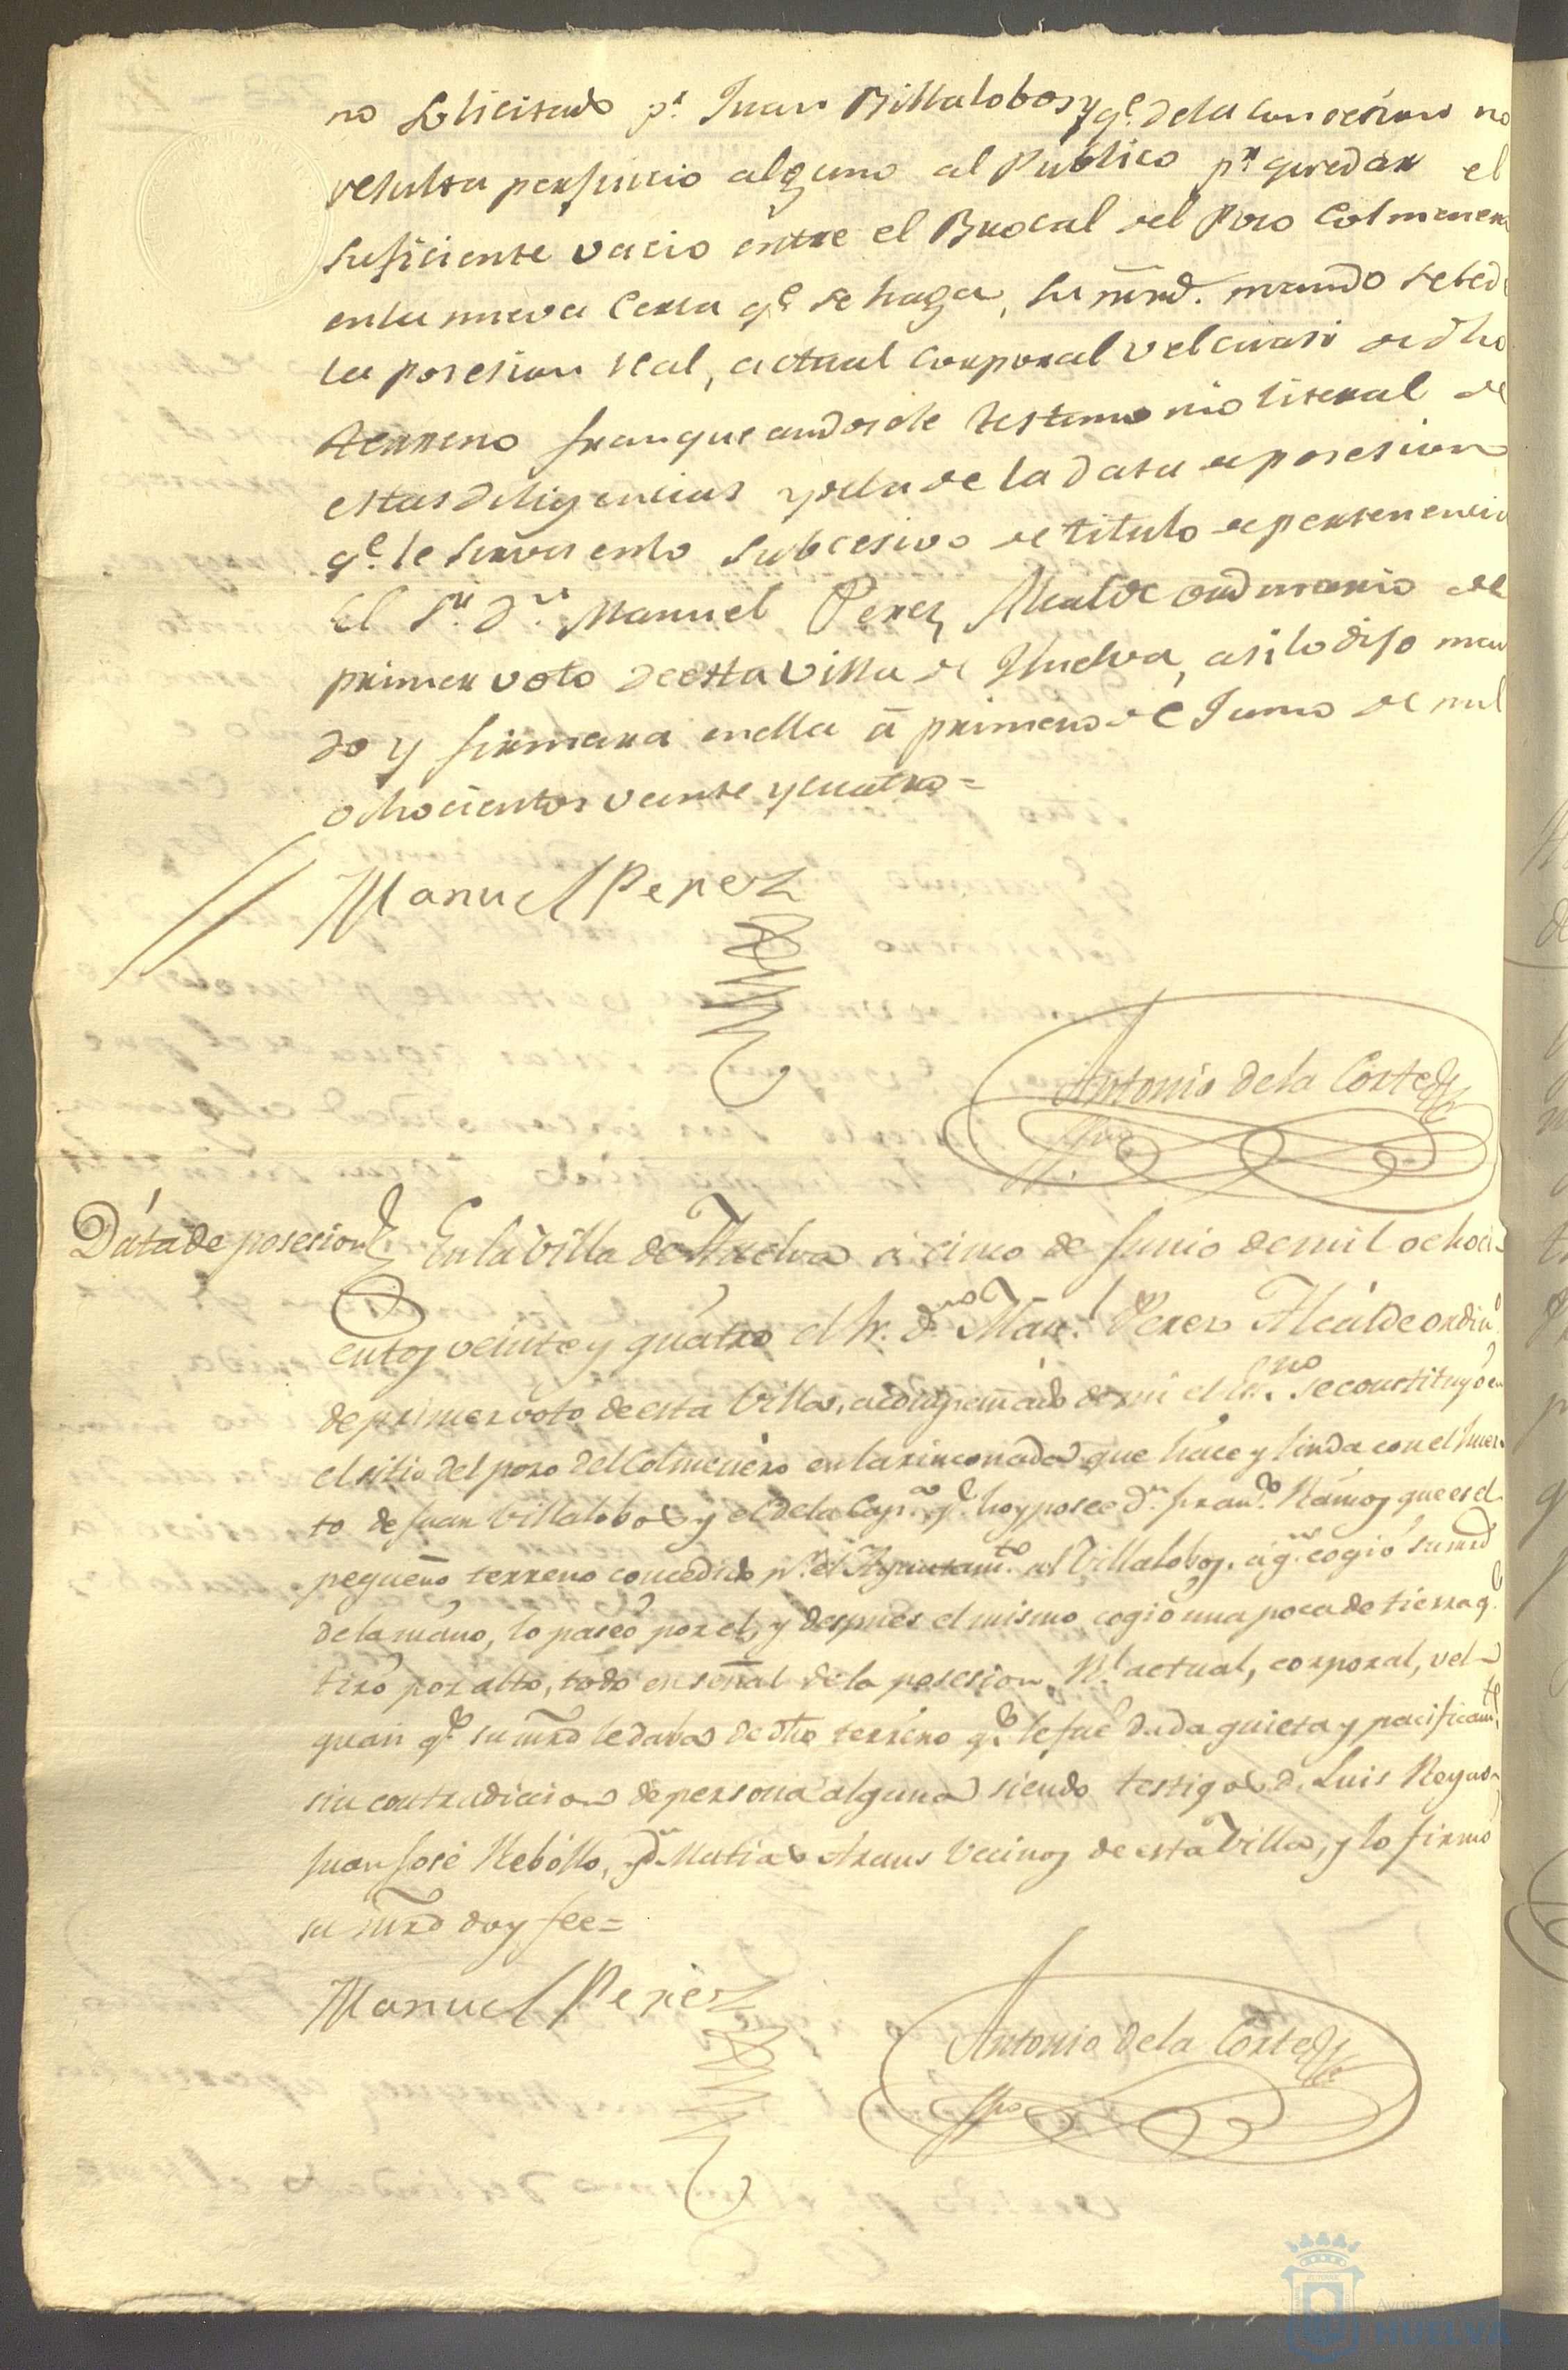 no solicitado pr. Juan Billalobos y qe. dela concesion no
resulta perjuicio alguno al Publico pr. quedar el
suficiente vacio entre el Brocal del Poso Colmenero
en la nueva Cerca qe se haga, su mrd. mando se le dé
la posesion real, actual corporal vel cuasi de dho
terreno franqueandosele testimonio literal de
estas diligencias y de la de la data de posesion
qe. le sirva en lo subcesivo de titulo de pertenencia
El Sr. Dn. Manuel Perez Alcalde ordinario de
primer voto de esta Villa de Huelva, asi lo dijo man
do y firmara en ella à primero de Junio de mil
ochocientos veinte y cuatro =
Manuel Perez
Antonio de la Corte
Data de posesion
En la Villa de Huelva a cinco de Junio de mil ochoci-
entos veinte y quatro el Sr. Dn. Man.l Perez Alcalde ordin.o
de primer voto de esta Villa, acompañado de mi el Es.no se constituyó en
el sitio del poso del Colmenero en la rinconada que hace y linda con el huer-
to de Juan Villalobos y el de la Cap.a q.e hoy posee Dn. Fran.co Ramos que es el
pequeño terreno concedido p.r el Ayuntam.to al Villalobos, a q.n cogió su mrd
de la mano, lo paseó por el, y despues el mismo cogió una poca de tierra q.e
tiró por alto, todo en señal de la posesion R.l actual, corporal, vel
quasi q.e su mrd le daba de dho terreno q.e le fué dada quieta y pacificam.te
sin contradicion de persona alguna siendo testigos D. Luis Rojas
Juan José Rebollo, y Dn. Matias Arans Vecinos de esta Villa, y lo firmó
su mrd doy fee =
Manuel Perez
Antonio de la Corte
HUELVA